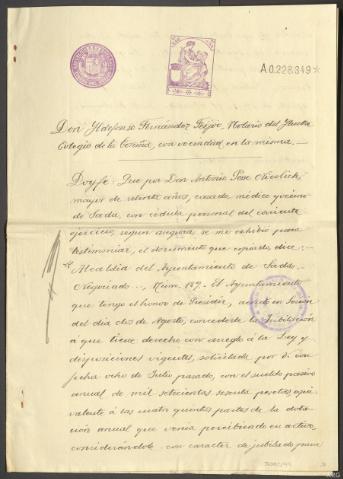 A0.228.349*
Don Ildefonso Fernández Feijóo, Notario del Ilustre
Colegio de la Coruña, con vecindad en la misma.
Doy fé: Que por Don Antonio
mayor de setenta años, casado médico y vecino
de Sada, con cédula personal del corriente
ejercicio, segun asegura se me exhibe para
testimoniar, el documento que copiado, dice:
Alcaldia del Ayuntamiento de Sada.
Negociado. Num. 187. El Ayuntamiento
que tengo el honor de Presidir, acordó en sesion
del dia de Agosto, concederle la Jubilación
á que tiene derecho con arreglo á la Ley y
disposiciones vigentes, solicitada por V. con
fecha ocho de Julio pasado, con el sueldo pasivo
anual de mil seiscientas sesenta pesetas equi
valente á las cuatro quintas partes de la dota
ción anual que venia percibiendo en activo
considerándole con caracter de jubilado para